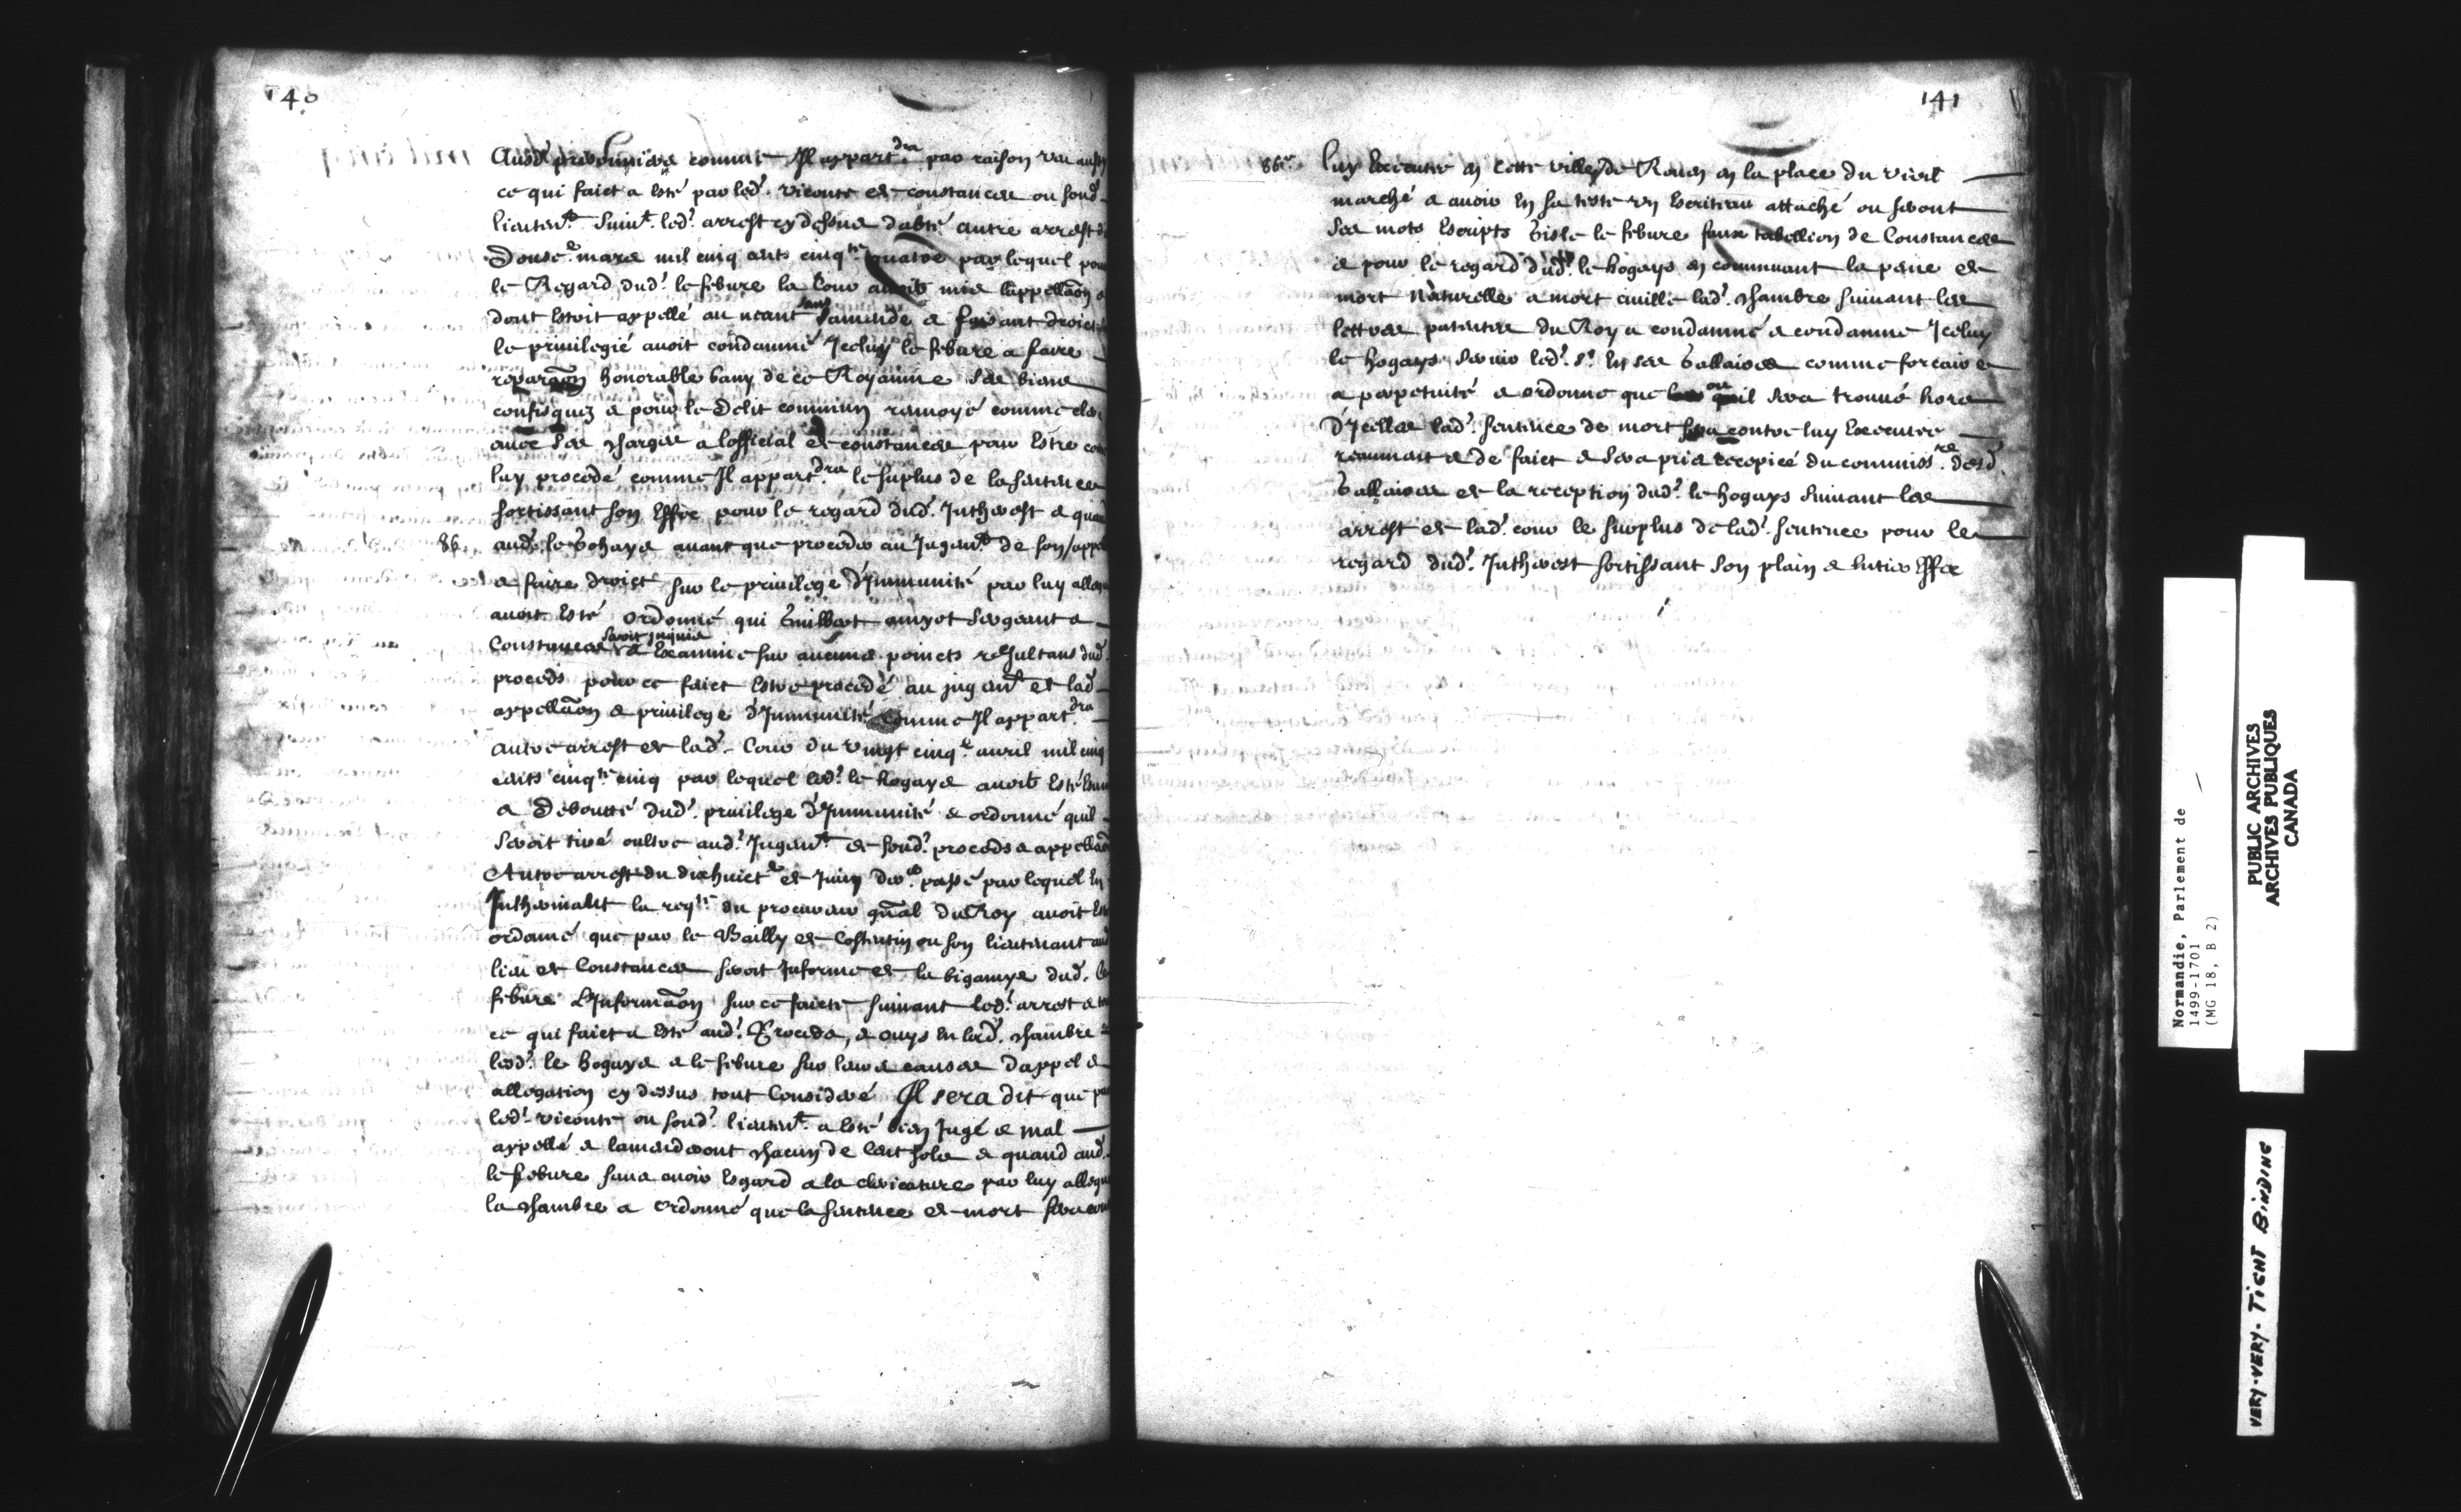 140
Ausd. prisonniers comme Il appart.dra par raison veu aussy
ce qui faict a esté par led. viconte de constances ou sond.
lieuten.t suiv.t led. arrest cy dessus dabté autre arrest d
Douse.e mars mil cinq cents cinq.te quatre par lequel pour
le Regard dud. le febure la Cour avoit mis lappellaon
dont estoit appellé au neant sans lamende & faisant droict
le privilegié avoit condamné Iceluy le febure a faire
reparaon honorable bany de ce Royaume ses biens
confisquez & pour le delit commun ranvoyé comme clerc
avec ses charges a lofficial de constances pour estre
luy procedé comme Il appart.dra le suplus de la sentence
sortissant son Effec pour le regard dud. Jutherest & quand
86
aud. le Hogays avant que proceder au Jugem.t de son appel
& faire droict sur le privilege d'Immunité par luy allegué
avoit esté ordonné qui Guillbert amyot sergeant a
Constances seroit jnquis & Examiné sur aucuns poincts resultans dud.
proceds pour ce faict estre procedé au jugem.t de lad.
appellaon & privilege d'Immunité comme Il appart.dra
autre arrest de lad. Cour du vingt cinq.e avril mil cinq
cents cinq.te cinq par lequel led. le hogays avoit esté
& Deboutté dud. privilege d'Immunité & ordonné quil
seroit tiré oultre aud. Jugem.t de sond. proceds & appellaon
Autre arrest du dixhuict.e de Juin der.e passé par lequel En
Jutherinalnt la req.te du procureur gnal du Roy avoit esté
ordonné que par le Bailly de Costentin ou son lieutenant aud
lieu de Constances seroit Informé de la bigamye dud. le
febure L'Informaon sur ce faicte suivant led. arrest & tout
ce qui faict a esté aud. Proceds, & ouys en lad. chambre
lesd. le hogays & le febure sur leurs causes dappel &
allegation cy dessus tout Consideré Il sera dit que par
led. viconte ou sond. lieuten.t a esté bien Jugé & mal
appellé & lamenderont chacun de cent sols & quand aud.
le febure sans avoir esgard a la clericature par luy allegué
la chambre a ordonné que la sentence de mort sera
141
86
luy Executté en cette ville de Rouen en la place du vieil
marché & avoir en sa teste un Escriteau attaché ou seront
ses mots Escripts Gisle le febure faux tabellion de Constances
& pour le regard dud. le hogays en commuant la peine de
mort naturelle a mort civille lad. chambre suivant les
lettres patentes du Roy a condamné & condamne Iceluy
le hogays servir led. Sr En ses Gallaires comme forcaire
a perpetuité & ordonne que ou il sera trouvé hors
D'Icelles lad. sentence de mort sera contre luy Executée
& de faict & sera pris recepicé du commiss.re desd.
Gallaires de la reception dud. le hogays suivant les
arrest de lad. cour le surplus de lad. sentence pour le
regard dud. Jutherest sortissant son plain & entier Effec
Normandie, Parlement de
1499-1701
(MG 18, B 2)
PUBLIC ARCHIVES
ARCHIVES PUBLIQUES
CANADA
VERY-VERY- TIGHT BINDING